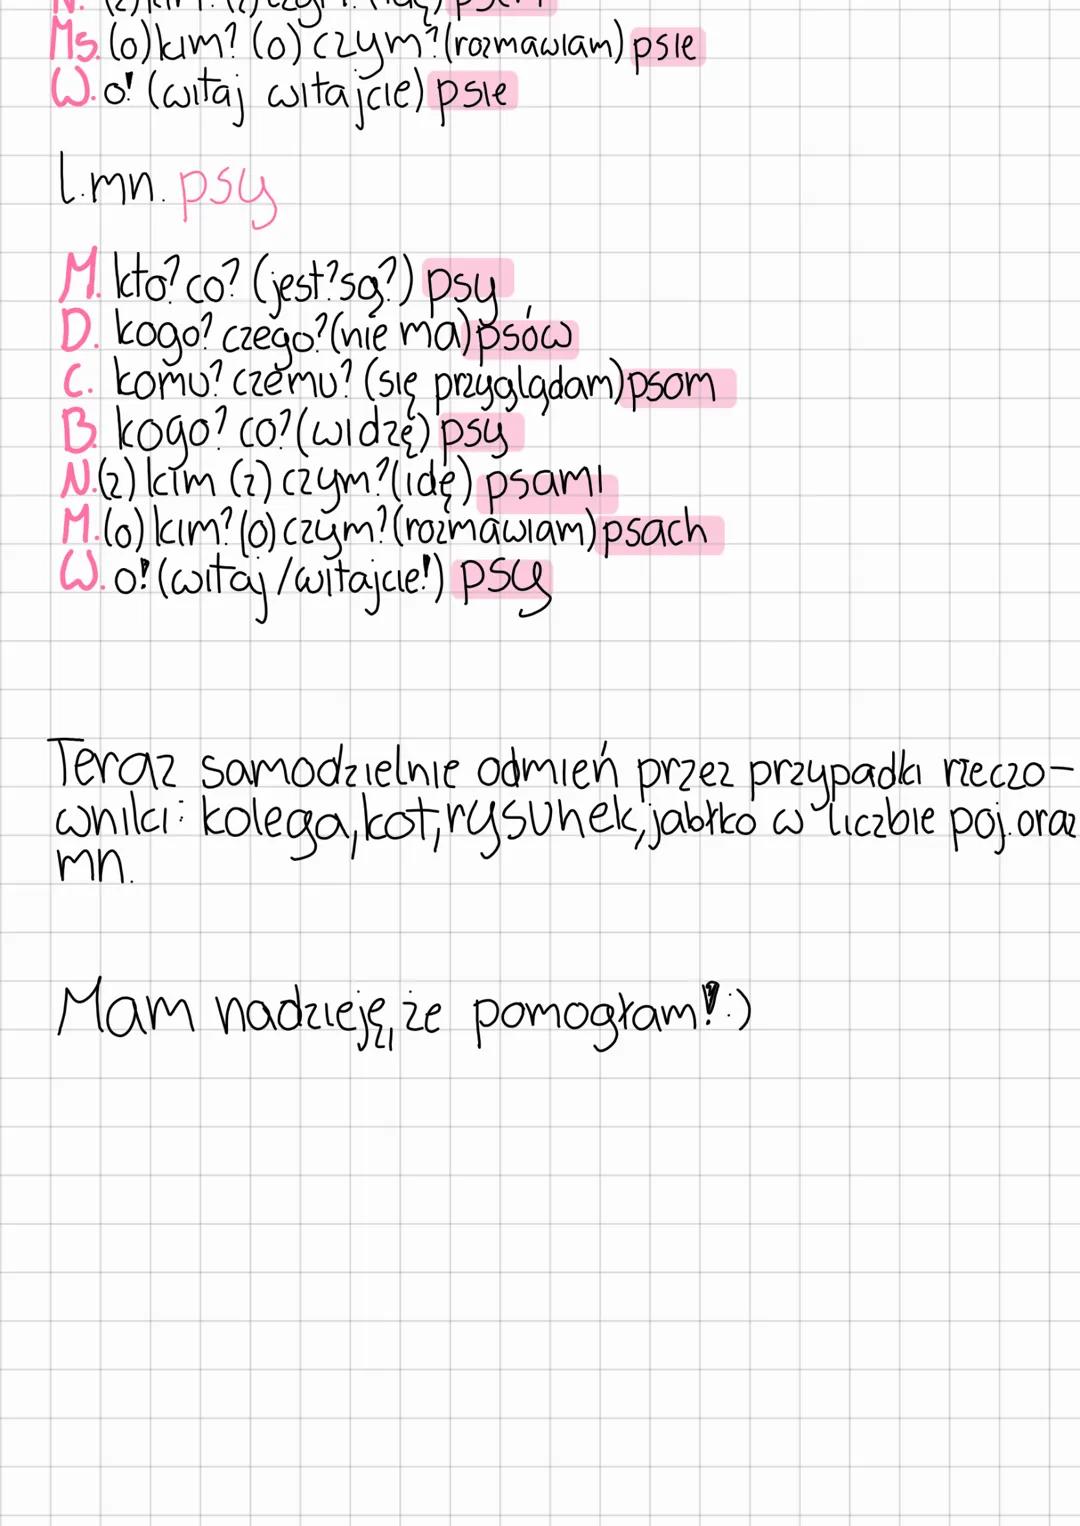 N. (z) kim? (z) czym? (idę) psem
Ms. (o) kim? (o) czym? (rozmawiam) psie
W. o! (witaj witajcie) psie
l.mn. psy
M. kto? co? (jest? są?) psy
D. kogo? czego? (nie ma) psów
C. komu? czemu? (się przyglądam) psom
B. kogo? co? (widzę) psy
N. (z) kim (z) czym? (idę) psami
M. (o) kim? (o) czym? (rozmawiam) psach
W. o! (witaj/witajcie!) psy
Teraz samodzielnie odmień przez przypadki rzeczo-
wniki: kolega, kot, rysunek, jabłko w liczbie poj. oraz
mn.
Mam nadzieję, że pomogłam! :)